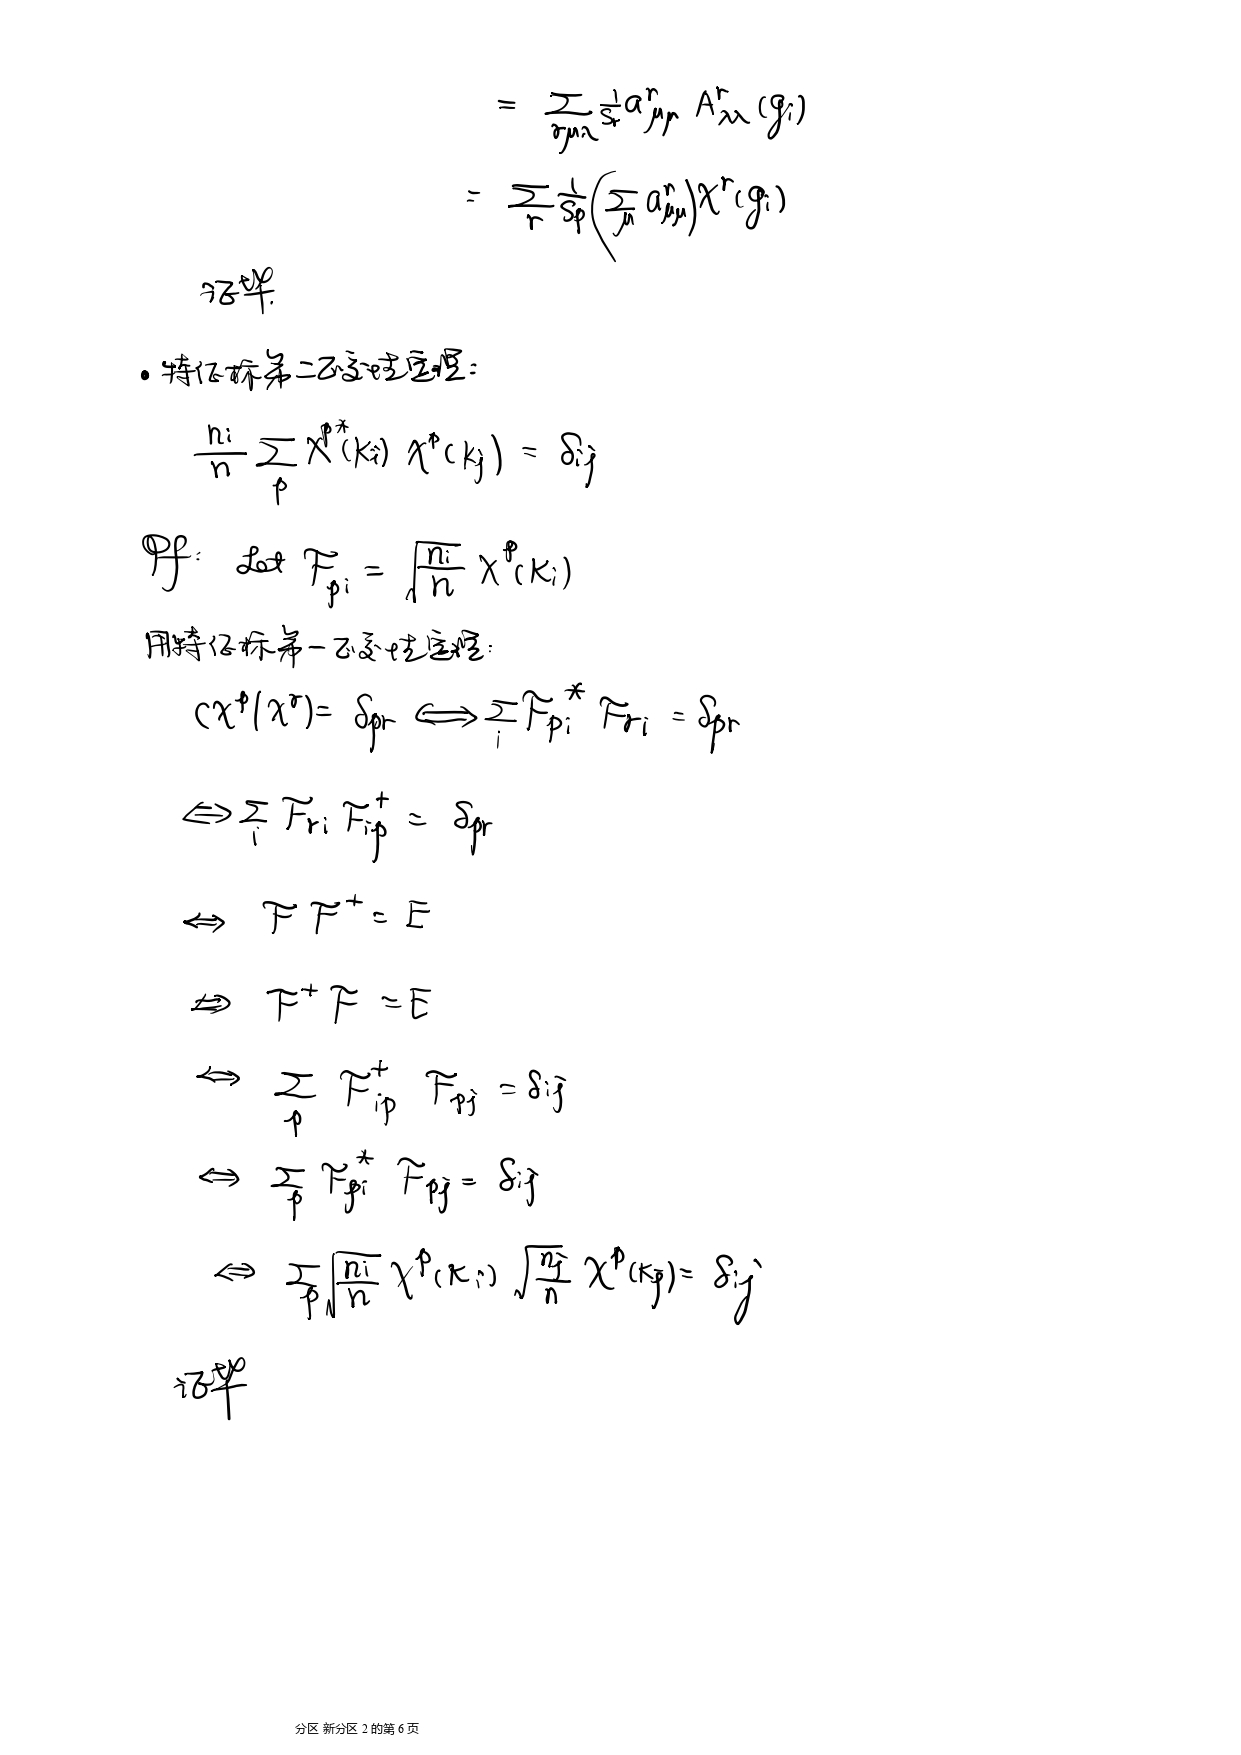 = Σ_{rμλ} 1/S_r a^r_{μμ} A^r_{λλ}(g_i)
= Σ_r 1/S_p (Σ_μ a^r_{μμ}) χ^r(g_i)
证毕.
• 特征标第二正交性定理:
n_i/n Σ_p χ^{p*}(K_i) χ^p(K_j) = δ_{ij}
Pf: Let F_{pi} = √(n_i/n) χ^p(K_i)
用特征标第一正交性定理:
(χ^p|χ^r) = δ_{pr} ⟺ Σ_i F_{pi}^* F_{ri} = δ_{pr}
⟺ Σ_i F_{ri} F_{ip}^+ = δ_{pr}
⟺ F F^+ = E
⟺ F^+ F = E
⟺ Σ_p F_{ip}^+ F_{pj} = δ_{ij}
⟺ Σ_p F_{pi}^* F_{pj} = δ_{ij}
⟺ Σ_p √(n_i/n) χ^p(K_i) √(n_j/n) χ^p(K_j) = δ_{ij}
证毕
分区 新分区 2 的第 6 页